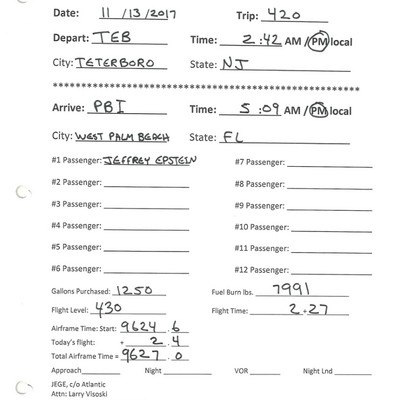 Date: 11/13/2017 Trip: 420
Depart: TEB Time: 2:42 AM / PM local
City: TETERBORO State: NJ
************************************************************
Arrive: PBI Time: 5:09 AM / PM local
City: WEST PALM BEACH State: FL
#1 Passenger: JEFFREY EPSTEIN #7 Passenger:
#2 Passenger: #8 Passenger:
#3 Passenger: #9 Passenger:
#4 Passenger: #10 Passenger:
#5 Passenger: #11 Passenger:
#6 Passenger: #12 Passenger:
Gallons Purchased: 1250 Fuel Burn lbs. 7991
Flight Level: 430 Flight Time: 2+27
Airframe Time: Start: 9624.6
Today's flight: + 2.4
Total Airframe Time = 9627.0
Approach Night VOR Night Lnd
JEGE, c/o Atlantic
Attn: Larry Visoski